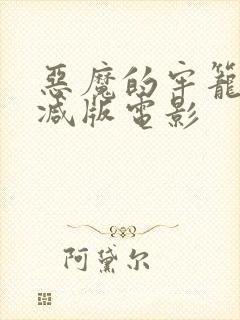 惡魔的牢籠
减版電影
阿黛尔